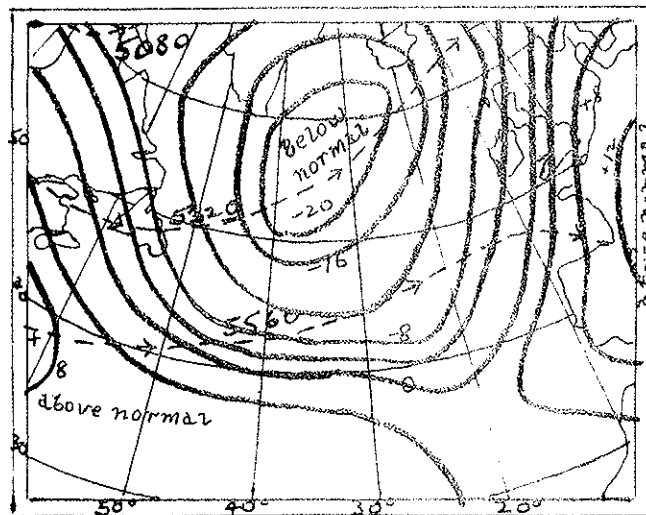 5080
below
normal
-20
5320
-16
5560
-8
0
8
+8
+12
above normal
50°
40°
30°
20°